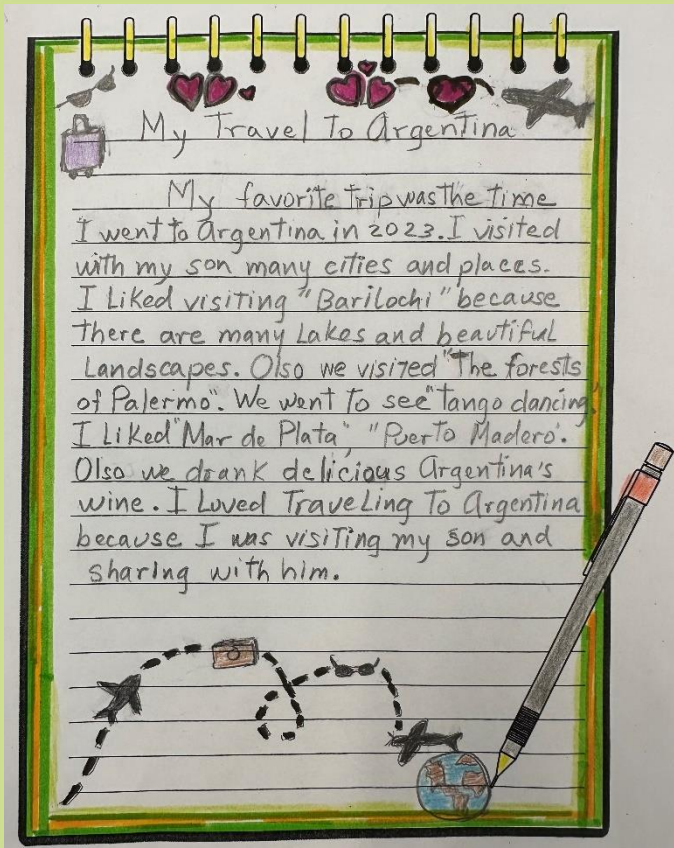 My Travel To Argentina
My favorite trip was the time
I went to Argentina in 2023. I visited
with my son many cities and places.
I Liked visiting "Barilochi" because
there are many Lakes and beautiful
Landscapes. Olso we visited "The forests
of Palermo". We went to see "tango dancing."
I Liked "Mar de Plata", "Puerto Madero".
Olso we drank delicious Argentina's
wine. I Loved Traveling To Argentina
because I was visiting my son and
sharing with him.